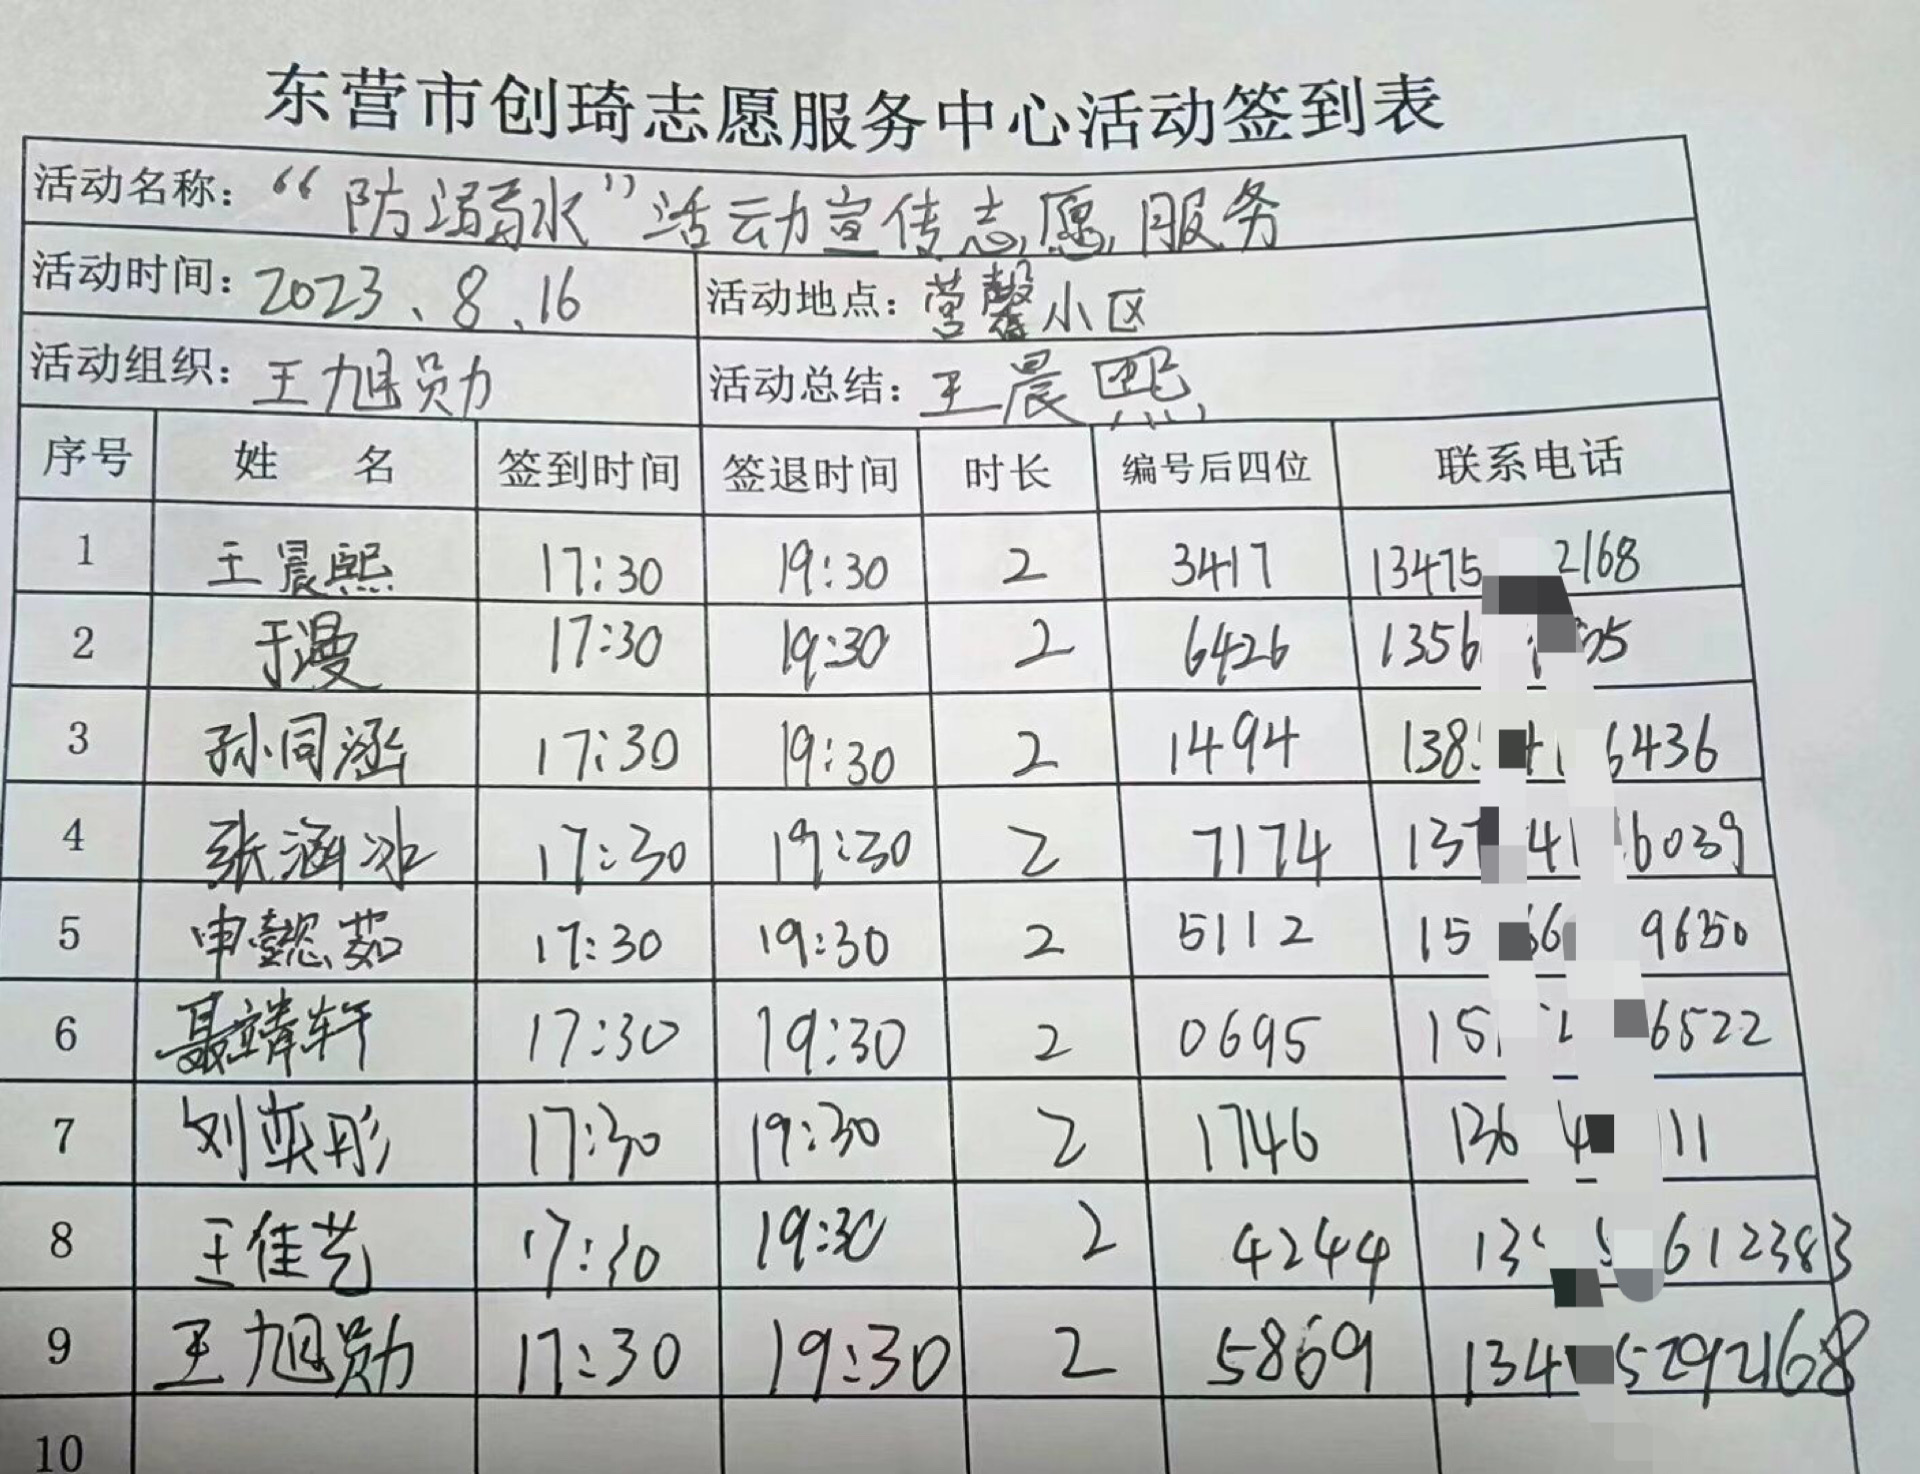 东营市创琦志愿服务中心活动签到表
活动名称：“防溺水”活动宣传志愿服务
活动时间：2023、8、16 活动地点：营馨小区
活动组织：王旭勋 活动总结：王晨熙
序号 姓 名 签到时间 签退时间 时长 编号后四位 联系电话
1 王晨熙 17:30 19:30 2 3417 13475 2168
2 于漫 17:30 19:30 2 6426 1356 05
3 孙同涵 17:30 19:30 2 1494 138 6436
4 张涵冰 17:30 19:30 2 7174 137 41 6039
5 申懿茹 17:30 19:30 2 5112 15 66 9650
6 聂靖轩 17:30 19:30 2 0695 15 6522
7 刘奕彤 17:30 19:30 2 1746 136 4 11
8 王佳艺 17:30 19:30 2 4244 13 612383
9 王旭勋 17:30 19:30 2 5869 134 5292168
10